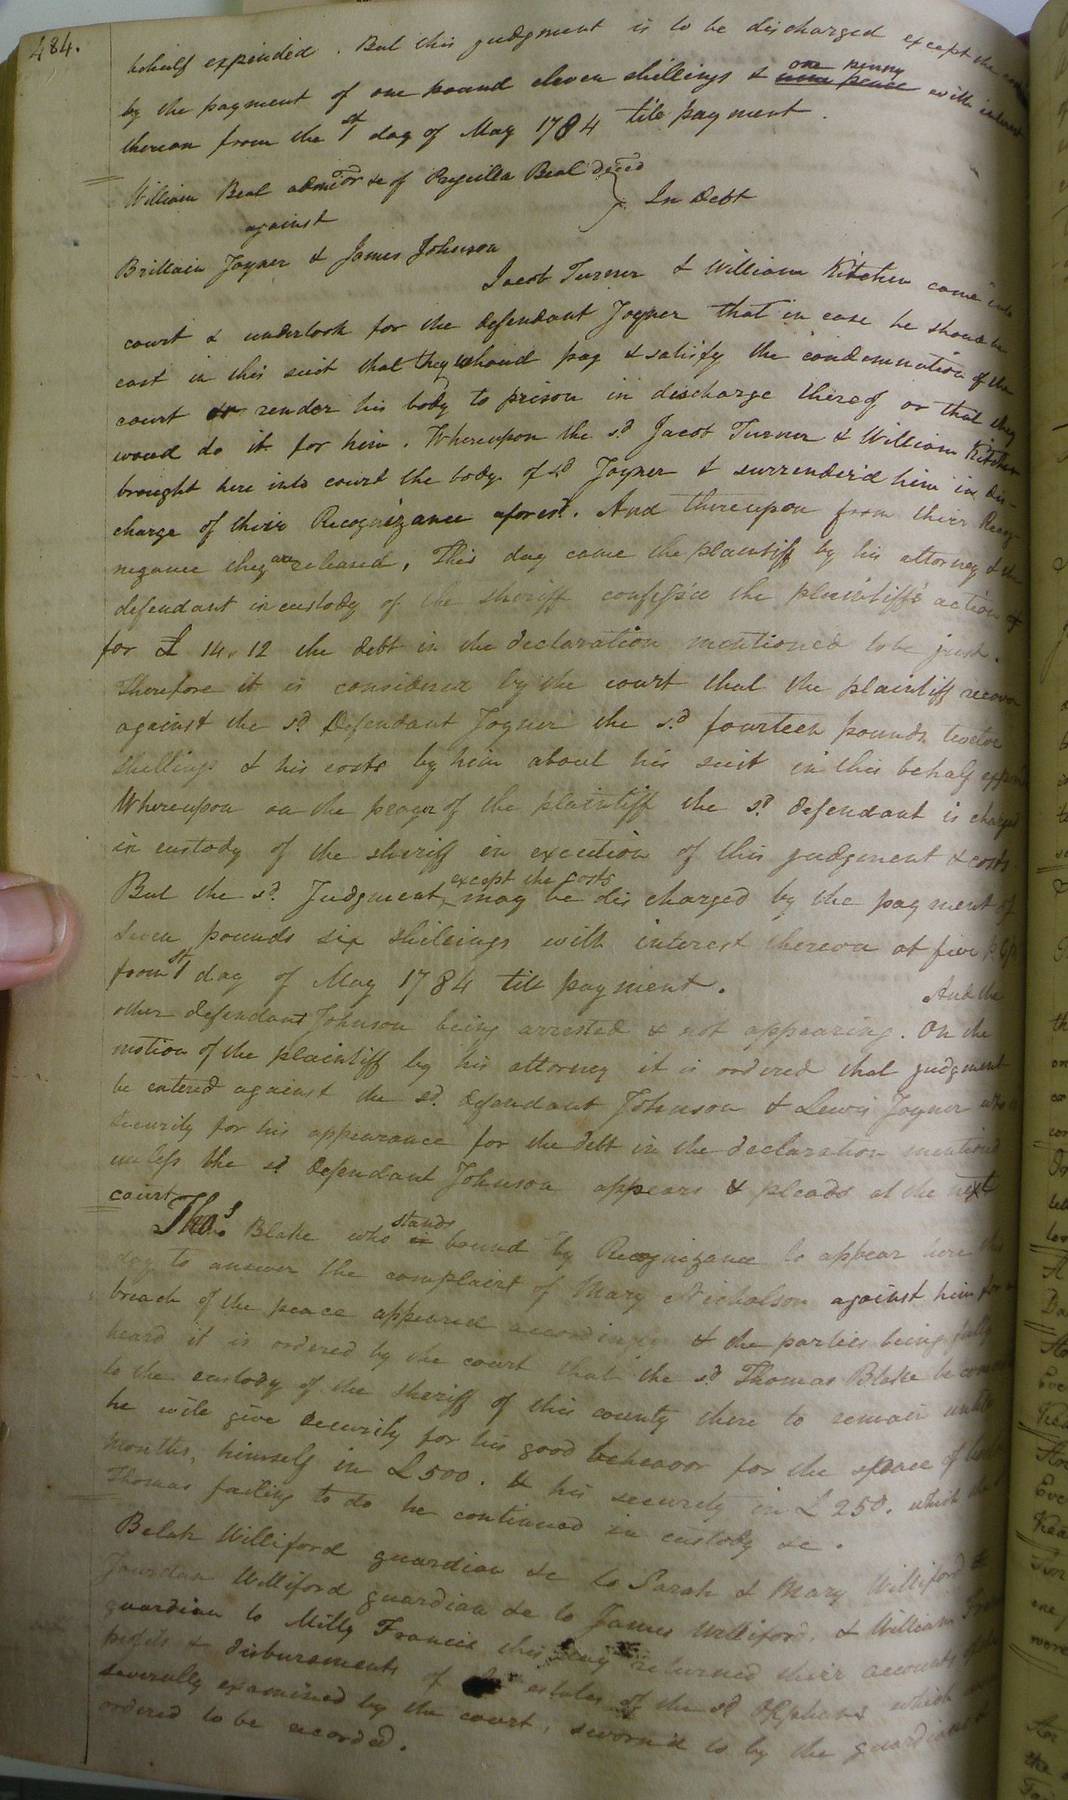 484.
behalf expended. But this judgment is to be discharged except the costs
by the payment of one pound eleven shillings & one penny nine pence with interest
thereon from the 1st day of May 1784 till payment.
William Beal admtor &c of Prescilla Beal deced
against } In Debt
Brittain Joyner & James Johnson
Jacob Turner & William Kitchen came into
court & undertook for the defendant Joyner that in case he should be
cast in this suit that they should pay & satisfy the condemnation of the
court or render his body to prison in discharge thereof or that they
would do it for him. Whereupon the sd Jacob Turner & William Kitchen
brought here into court the body of sd Joyner & surrender'd him in dis-
charge of their Recognizance aforesd. And thereupon from their Recog-
nizance they are released, This day came the plaintiff by his attorney & the
defendant in custody of the sheriff confess'd the plaintiff's action
for £ 14.12 the debt in the declaration mentioned to be just.
Therefore it is considered by the court that the plaintiff recover
against the sd Defendant Joyner the sd fourteen pounds twelve
shillings & his costs by him about his suit in this behalf
Whereupon on the prayer of the plaintiff the sd defendant is charged
in custody of the sheriff in execution of this judgment & costs
But the sd Judgment except the costs may be discharged by the payment of
seven pounds six shillings with interest thereon at five
from 1st day of May 1784 till payment. And the
other defendant Johnson being arrested & not appearing. On the
motion of the plaintiff by his attorney it is ordered that judgment
be entered against the sd defendant Johnson & Lewis Joyner who is
security for his appearance for the debt in the declaration mentioned
unless the sd defendant Johnson appears & pleads at the next
court
Thos. Blake who is stands bound by Recognizance to appear here this
day to answer the complaint of Mary Nicholson against him for a
breach of the peace appeared accordingly & the parties being fully
heard it is ordered by the court that the sd Thomas Blake be
to the custody of the sheriff of this county there to remain until
he will give security for his good behavor for the space of
months, himself in £500. & his security in £250. which the
Thomas failing to do he continued in custody &c.
Belah Williford guardian &c to Sarah & Mary Williford &
Jourdan Williford guardian &c to James Williford. & William
guardian to Milly Francis this day returned their accounts of the
profits & disbursements of estates of the sd Orphans which
severally examined by the court, sworn'd to by the guardians &
ordered to be recorded.